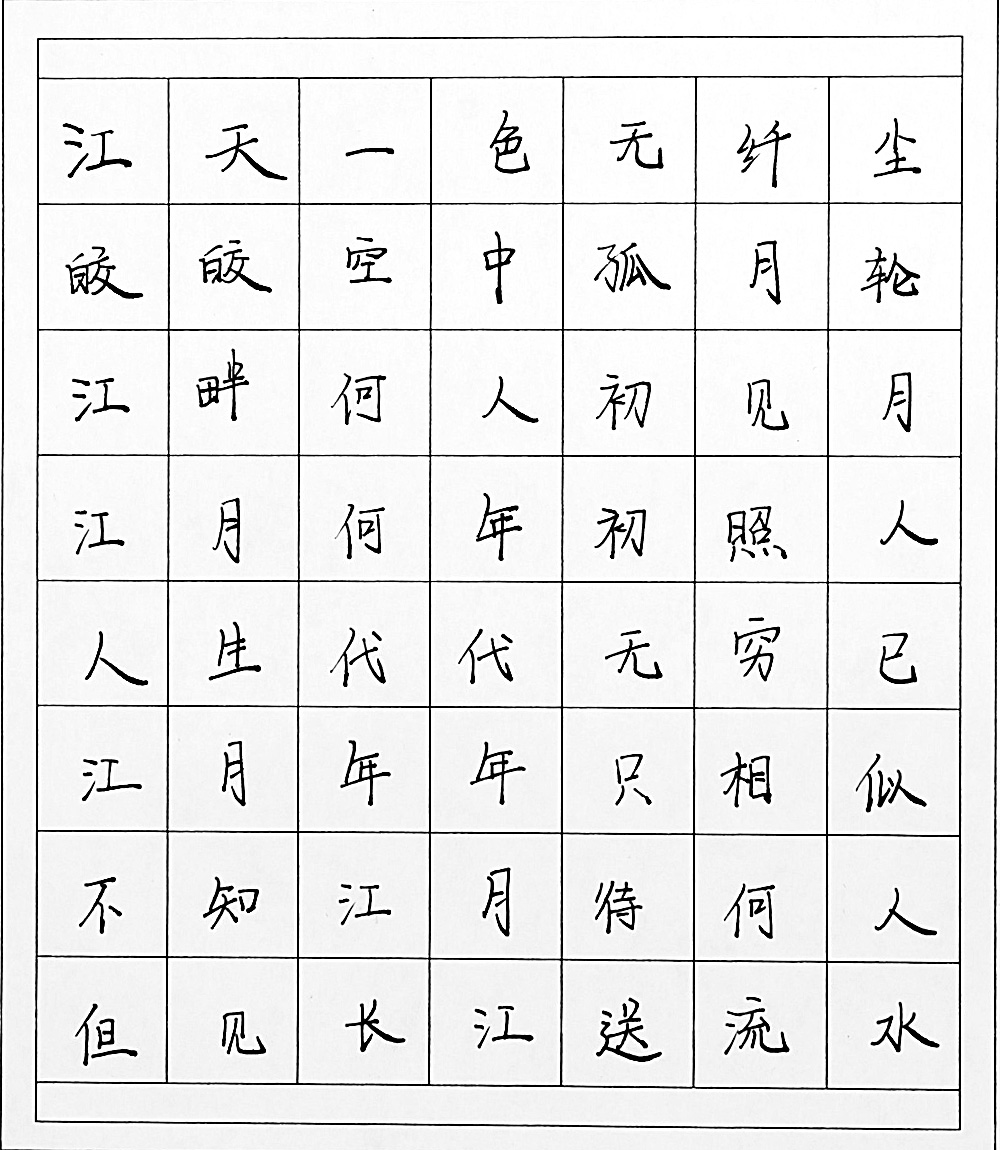 江天一色无纤尘
皎皎空中孤月轮
江畔何人初见月
江月何年初照人
人生代代无穷已
江月年年只相似
不知江月待何人
但见长江送流水